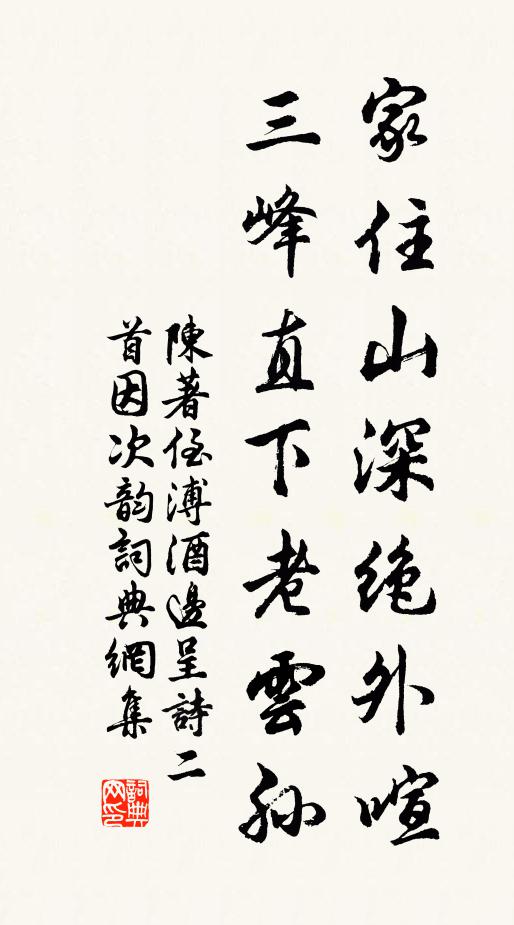 家住山深絶外喧
三峰直下老雲孫
陳著侄溥酒邊呈詩二
首因次韵詞典網集
詞典网印